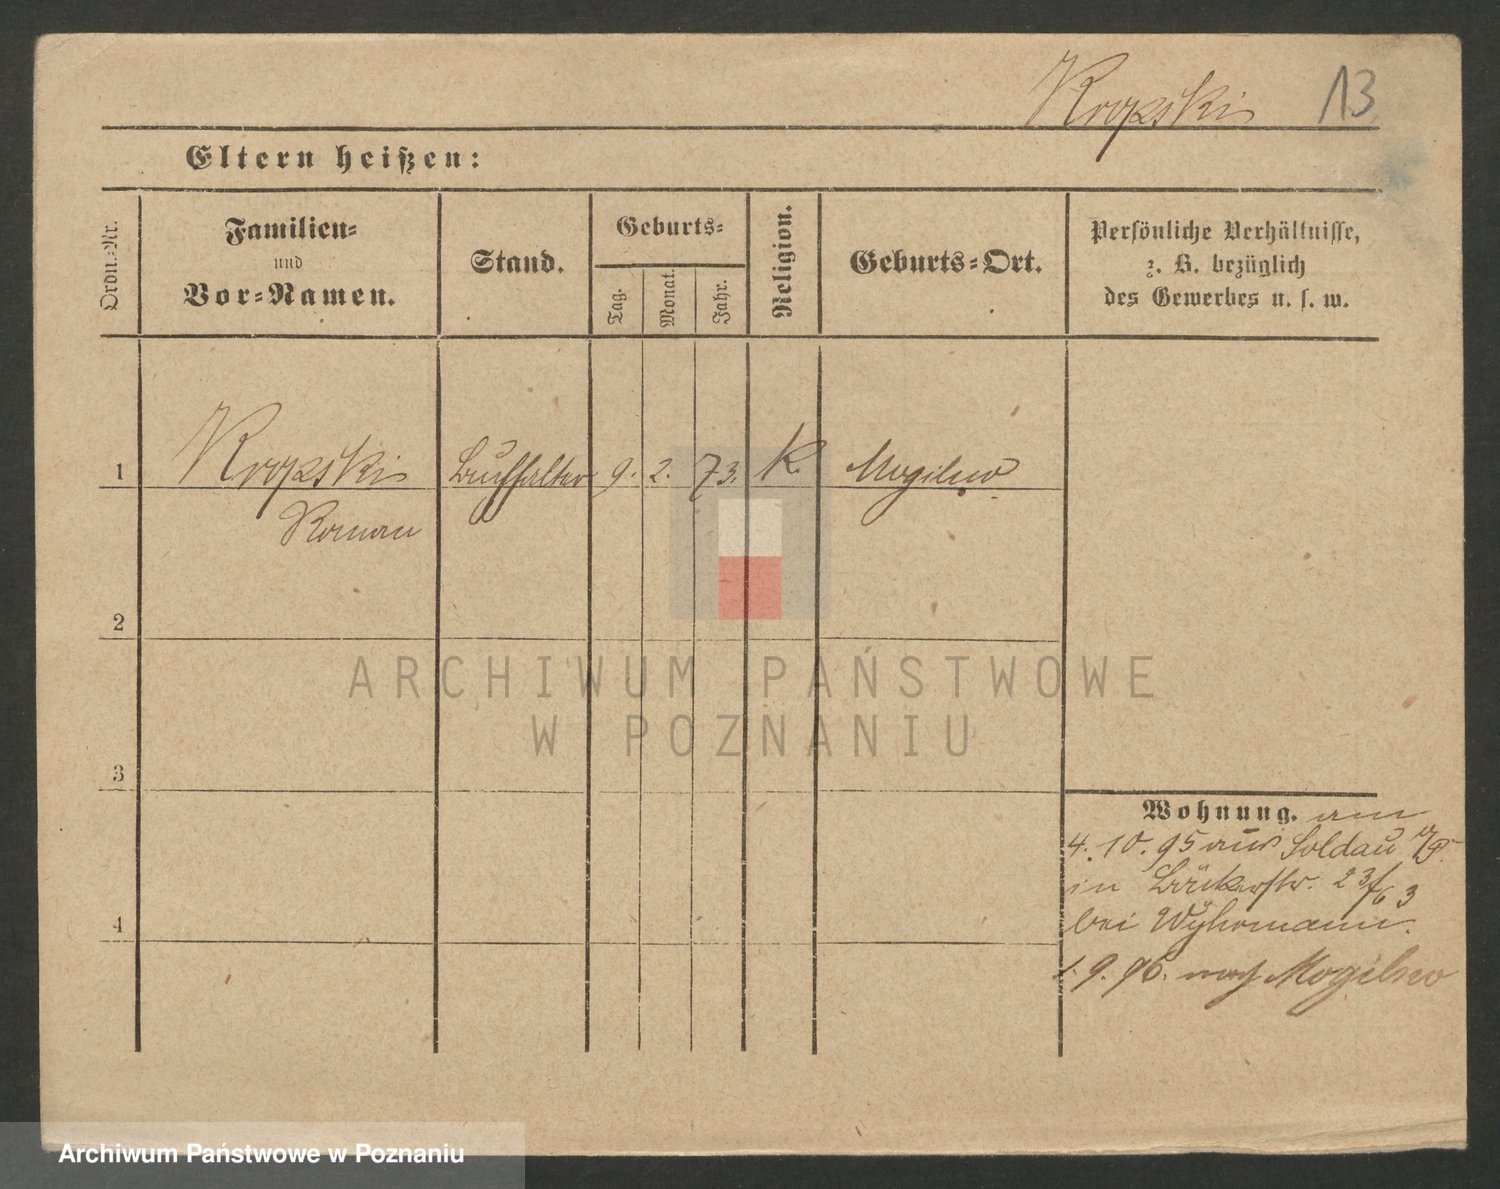 Kropski 13
Eltern heißen:
Ordn.-Nr.
Familien-
und
Vor-Namen.
Stand.
Geburts-
Tag.
Monat.
Jahr.
Religion.
Geburts-Ort.
Persönliche Verhältnisse,
z. B. bezüglich
des Gewerbes u. s. w.
1 Kropski Buchhalter 9. 2. 73. K. Mogilno
Roman
2
3
4
Wohnung. am
4. 10. 95 aus Soldau
in Bäckerstr. 23
bei
1. 9. 96. nach Mogilno
ARCHIWUM PAŃSTWOWE
W POZNANIU
Archiwum Państwowe w Poznaniu